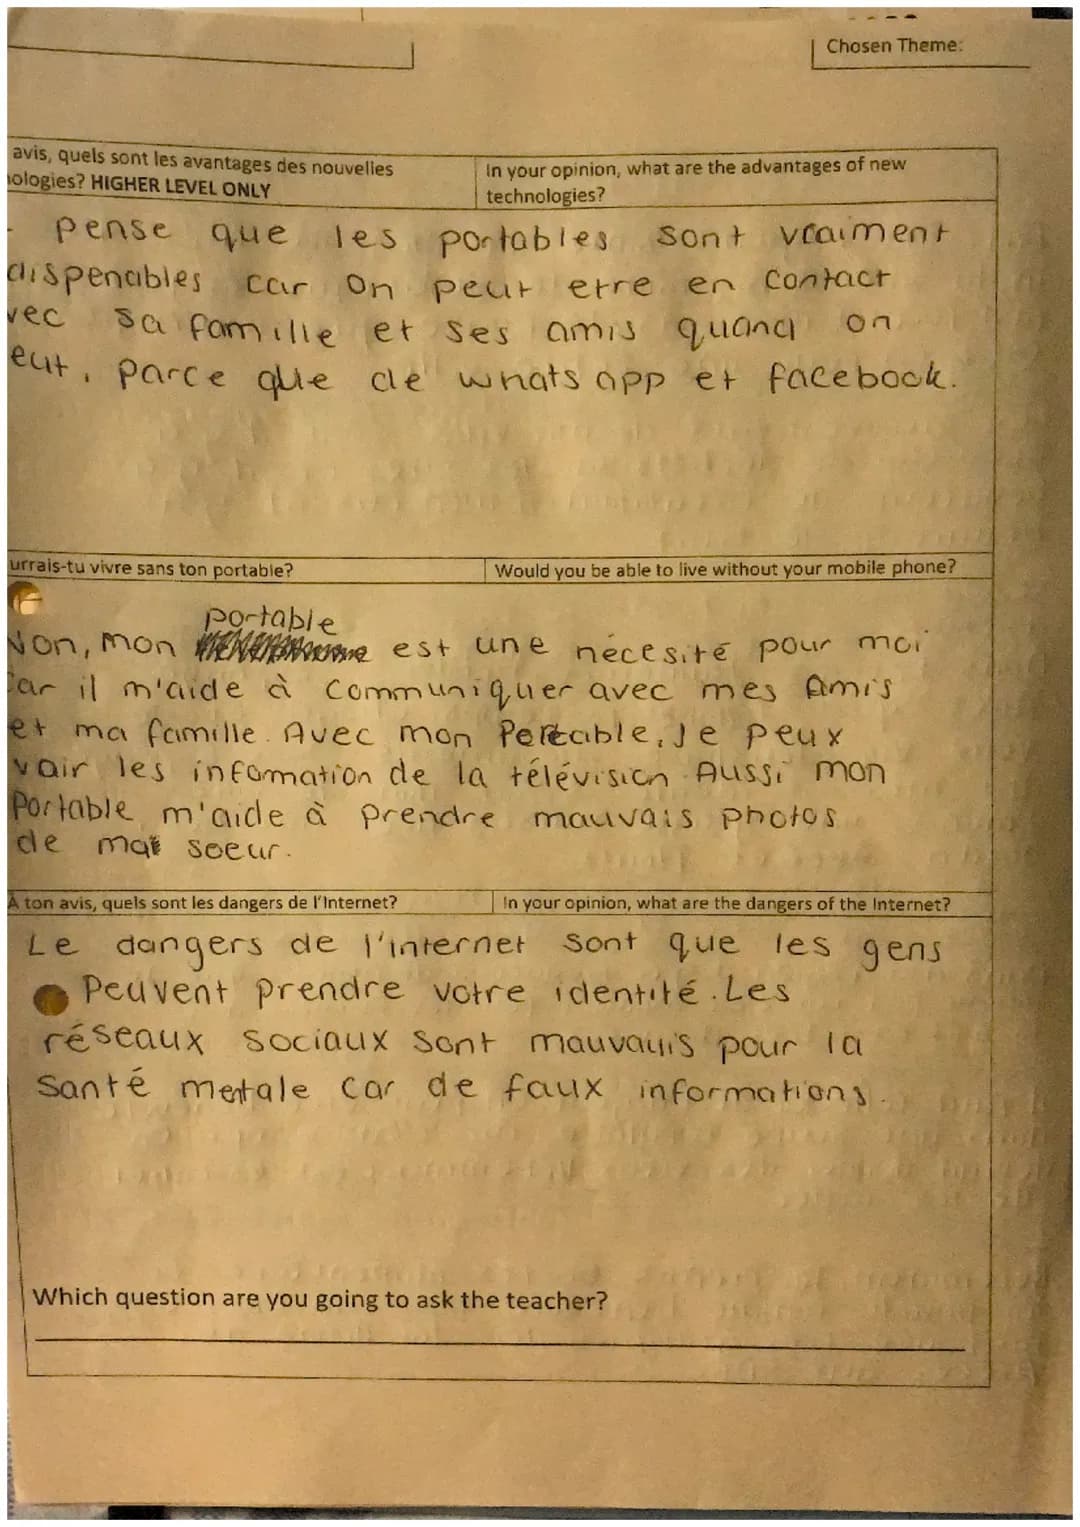 Chosen Theme:
avis, quels sont les avantages des nouvelles
ologies? HIGHER LEVEL ONLY
In your opinion, what are the advantages of new
technologies?
pense que les portables sont vraiment
dispenables car on peut etre en contact
vec sa famille et ses amis quand on
eut, parce que de whats app et facebook.
urrais-tu vivre sans ton portable?
Would you be able to live without your mobile phone?
portable
Non, mon est une nécesité pour moi
Car il m'aide à communiquer avec mes Amis
et ma famille. Avec mon Portable, Je peux
voir les infomation de la télévision. Aussi mon
Portable m'aide à prendre mauvais photos
de ma soeur.
A ton avis, quels sont les dangers de l'Internet?
In your opinion, what are the dangers of the Internet?
Le dangers de l'internet sont que les gens
Peuvent prendre votre identité. Les
réseaux sociaux sont mauvais pour la
Santé metale car de faux informations.
Which question are you going to ask the teacher?